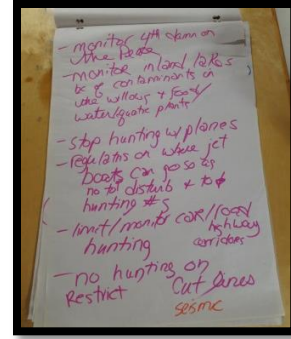 - monitor 4th dam on
the Peace
- monitor inland lakes
bc of contaminants on
the willows + food/
water/aquatic plants
- stop hunting w/ planes
- regulations on where jet
boats can go so as
not to disturb + to ↓
hunting #s
- limit/monitor car/road/
highway
hunting corridors
- no hunting on
Restrict Cut lines
seismic